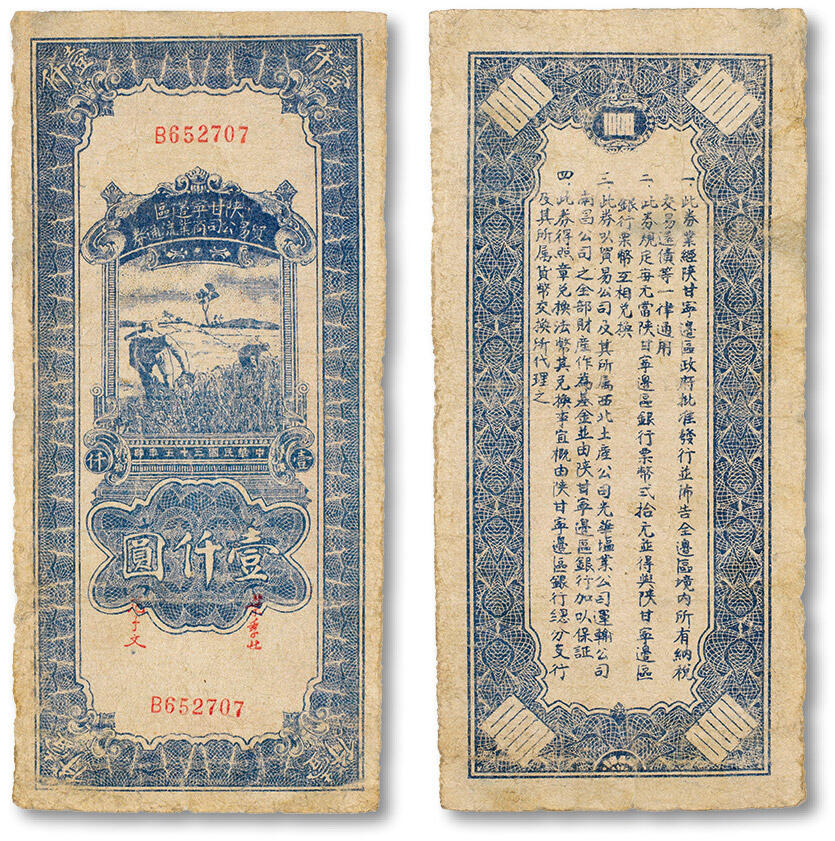 壹仟
壹仟
B652707
陝甘寧邊區
貿易公司商業流通券
中華民國三十五年印
壹
仟
壹仟圓
范子文
B652707
壹仟
壹仟
一、此券業經陝甘寧邊區政府批准發行並佈告全邊區境內所有納稅
交易還債等一律通用
二、此券規定每元當陝甘寧邊區銀行票幣弍拾元並得與陝甘寧邊區
銀行票幣互相兌換
三、此券以貿易公司及其所屬西北土產公司光華塩業公司運輸公司
南昌公司之全部財產作為基金並由陝甘寧邊區銀行加以保証
四、此券得照章兌換法幣其兌換事宜概由陝甘寧邊區銀行總分支行
及其所屬貨幣交換所代理之